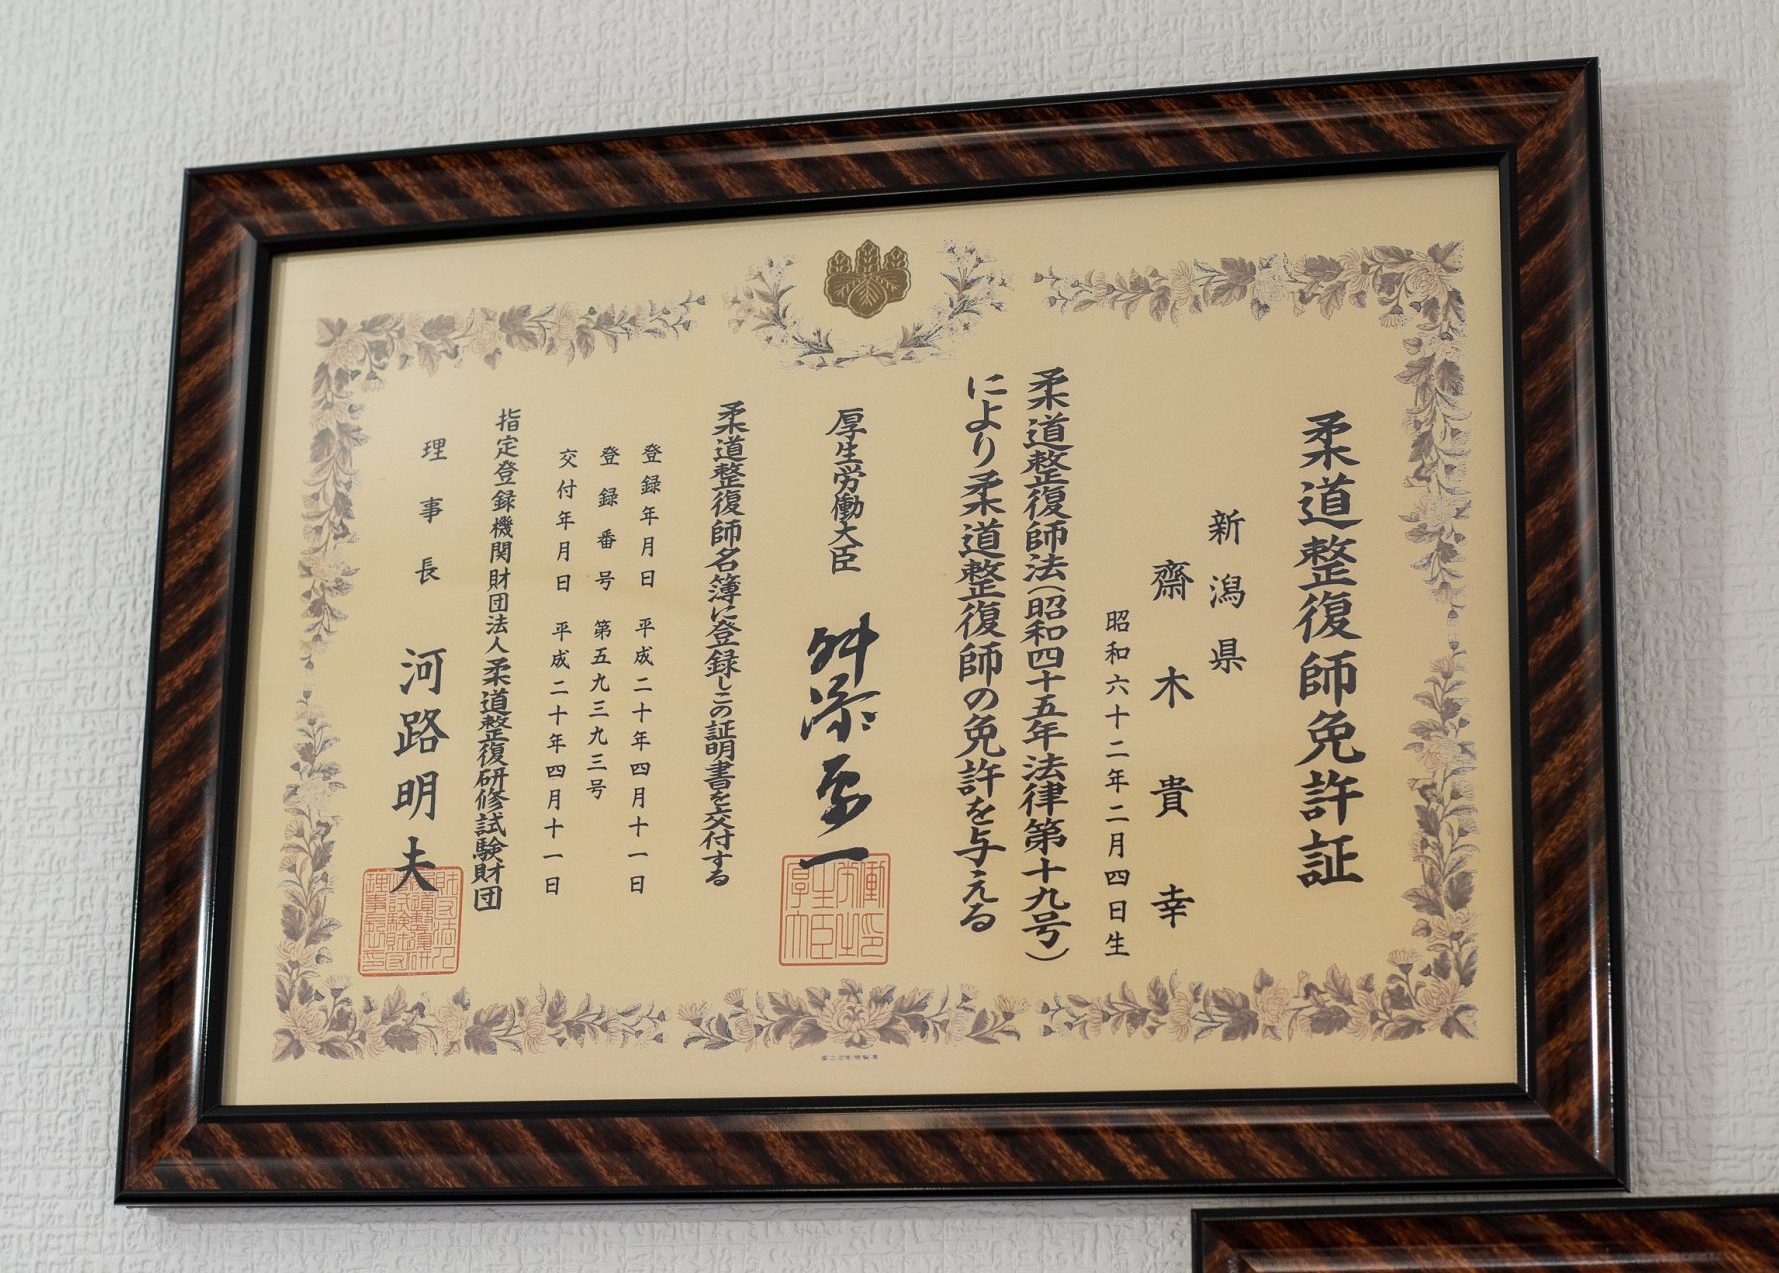 柔道整復師免許証
新潟県
齋木貴幸
昭和六十二年二月四日生
柔道整復師法(昭和四十五年法律第十九号)
により柔道整復師の免許を与える
厚生労働大臣 舛添要一
柔道整復師名簿に登録しこの証明書を交付する
登録年月日 平成二十年四月十一日
登録番号 第五九三九三号
交付年月日 平成二十年四月十一日
指定登録機関財団法人柔道整復研修試験財団
理事長 河路明夫